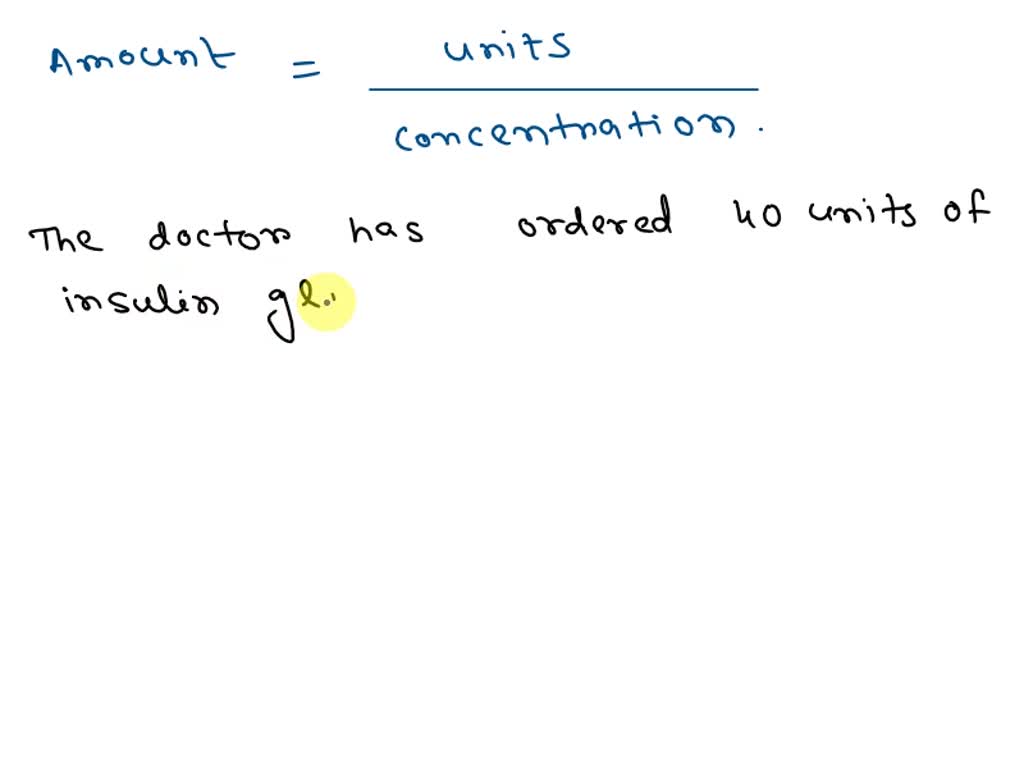 Amount = units
concentration.
The doctor has ordered 40 units of
insulin gl